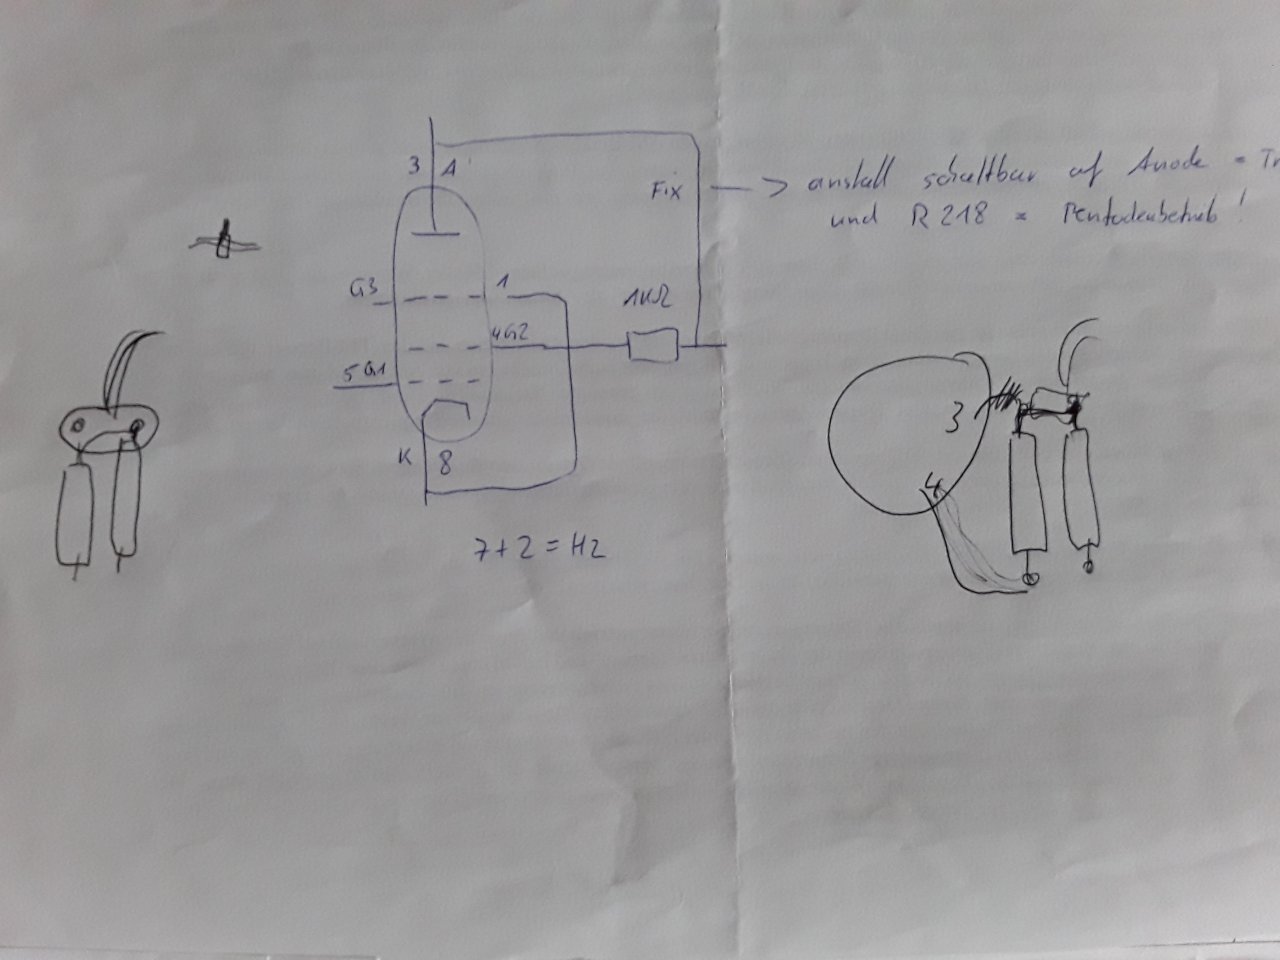 3 A
Fix
anstatt schaltbar auf Anode = Tr
und R 218 = Pentodenbetrieb!
G3
1
1KΩ
4 G2
5 G1
3
K 8
4
7+2 = Hz